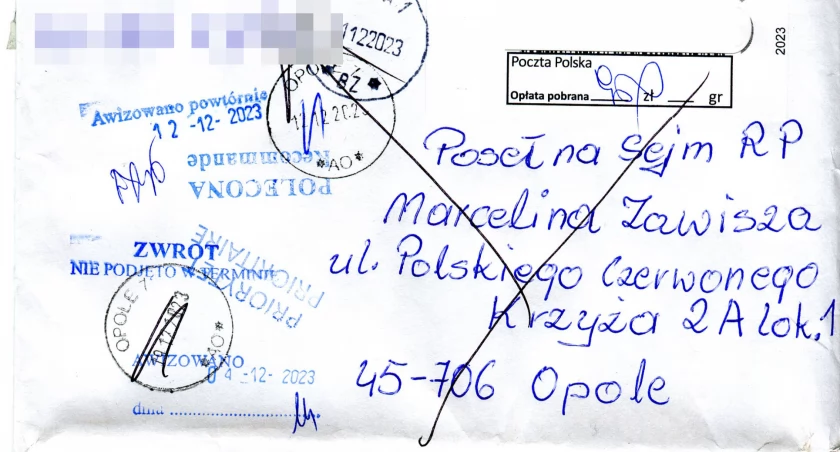 1122023
2023
Poczta Polska
Opłata pobrana zł gr
OPOLE 7
BZ
12.12.2023
*AO*
Awizowano powtórnie
12 -12- 2023
Recommandé
POLECONA
Poseł na Sejm RP
Marcelina Zawisza
ul. Polskiego Czerwonego
Krzyża 2A lok. 1
45-706 Opole
ZWROT
NIE PODJĘTO W TERMINIE
PRIORYTET
PRIORITAIRE
OPOLE 7
*AO*
AWIZOWANO
04 -12- 2023
dnia